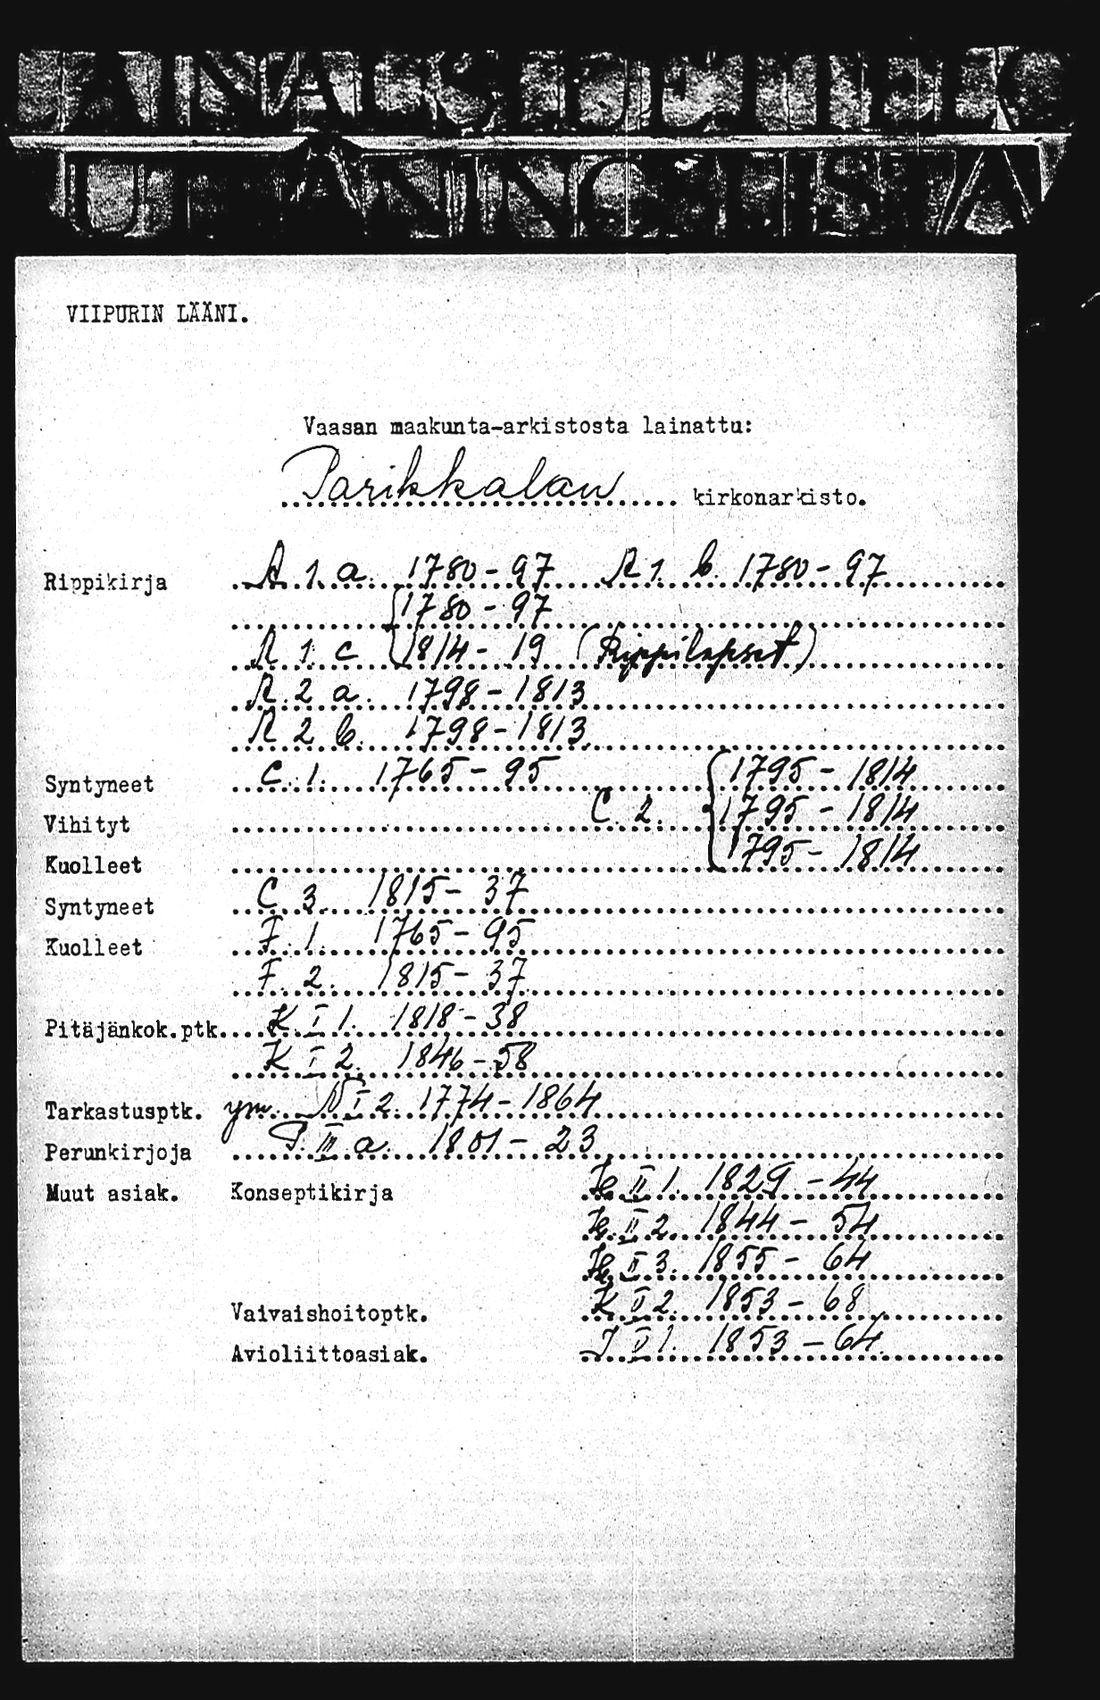 LAINAUSLUETTELO
UTLÅNINGSLISTA
VIIPURIN LÄÄNI.
Vaasan maakunta-arkistosta lainattu:
Parikkalan kirkonarkisto.
Rippikirja A 1 a. 1780-97 A 1. b. 1780-97
1780-97
A 1 c 1814-19 (Rippilapset)
A 2 a. 1798-1813
A 2 b. 1798-1813
Syntyneet C. 1. 1765-95 1795-1814
Vihityt C. 2. 1795-1814
Kuolleet 1795-1814
Syntyneet C 3. 1815-37
Kuolleet F. 1. 1765-95
F. 2. 1815-37
Pitäjänkok.ptk. K I 1. 1818-38
K I 2. 1846-58
Tarkastusptk. ym. N I 2. 1774-1864
Perunkirjoja P. III a. 1801-23
Muut asiak. Konseptikirja II 1. 1829-44
II 2. 1844-54
II 3. 1855-64
Vaivaishoitoptk. K II 2. 1853-68
Avioliittoasiak. J II 1. 1853-64